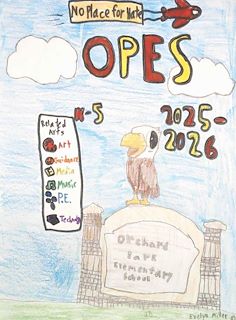 No Place for Hate
OPES
K-5
2025-
2026
Related
Arts
Art
Guidance
Media
Music
P.E.
Orchard
Park
Elementary
School
Evelyn